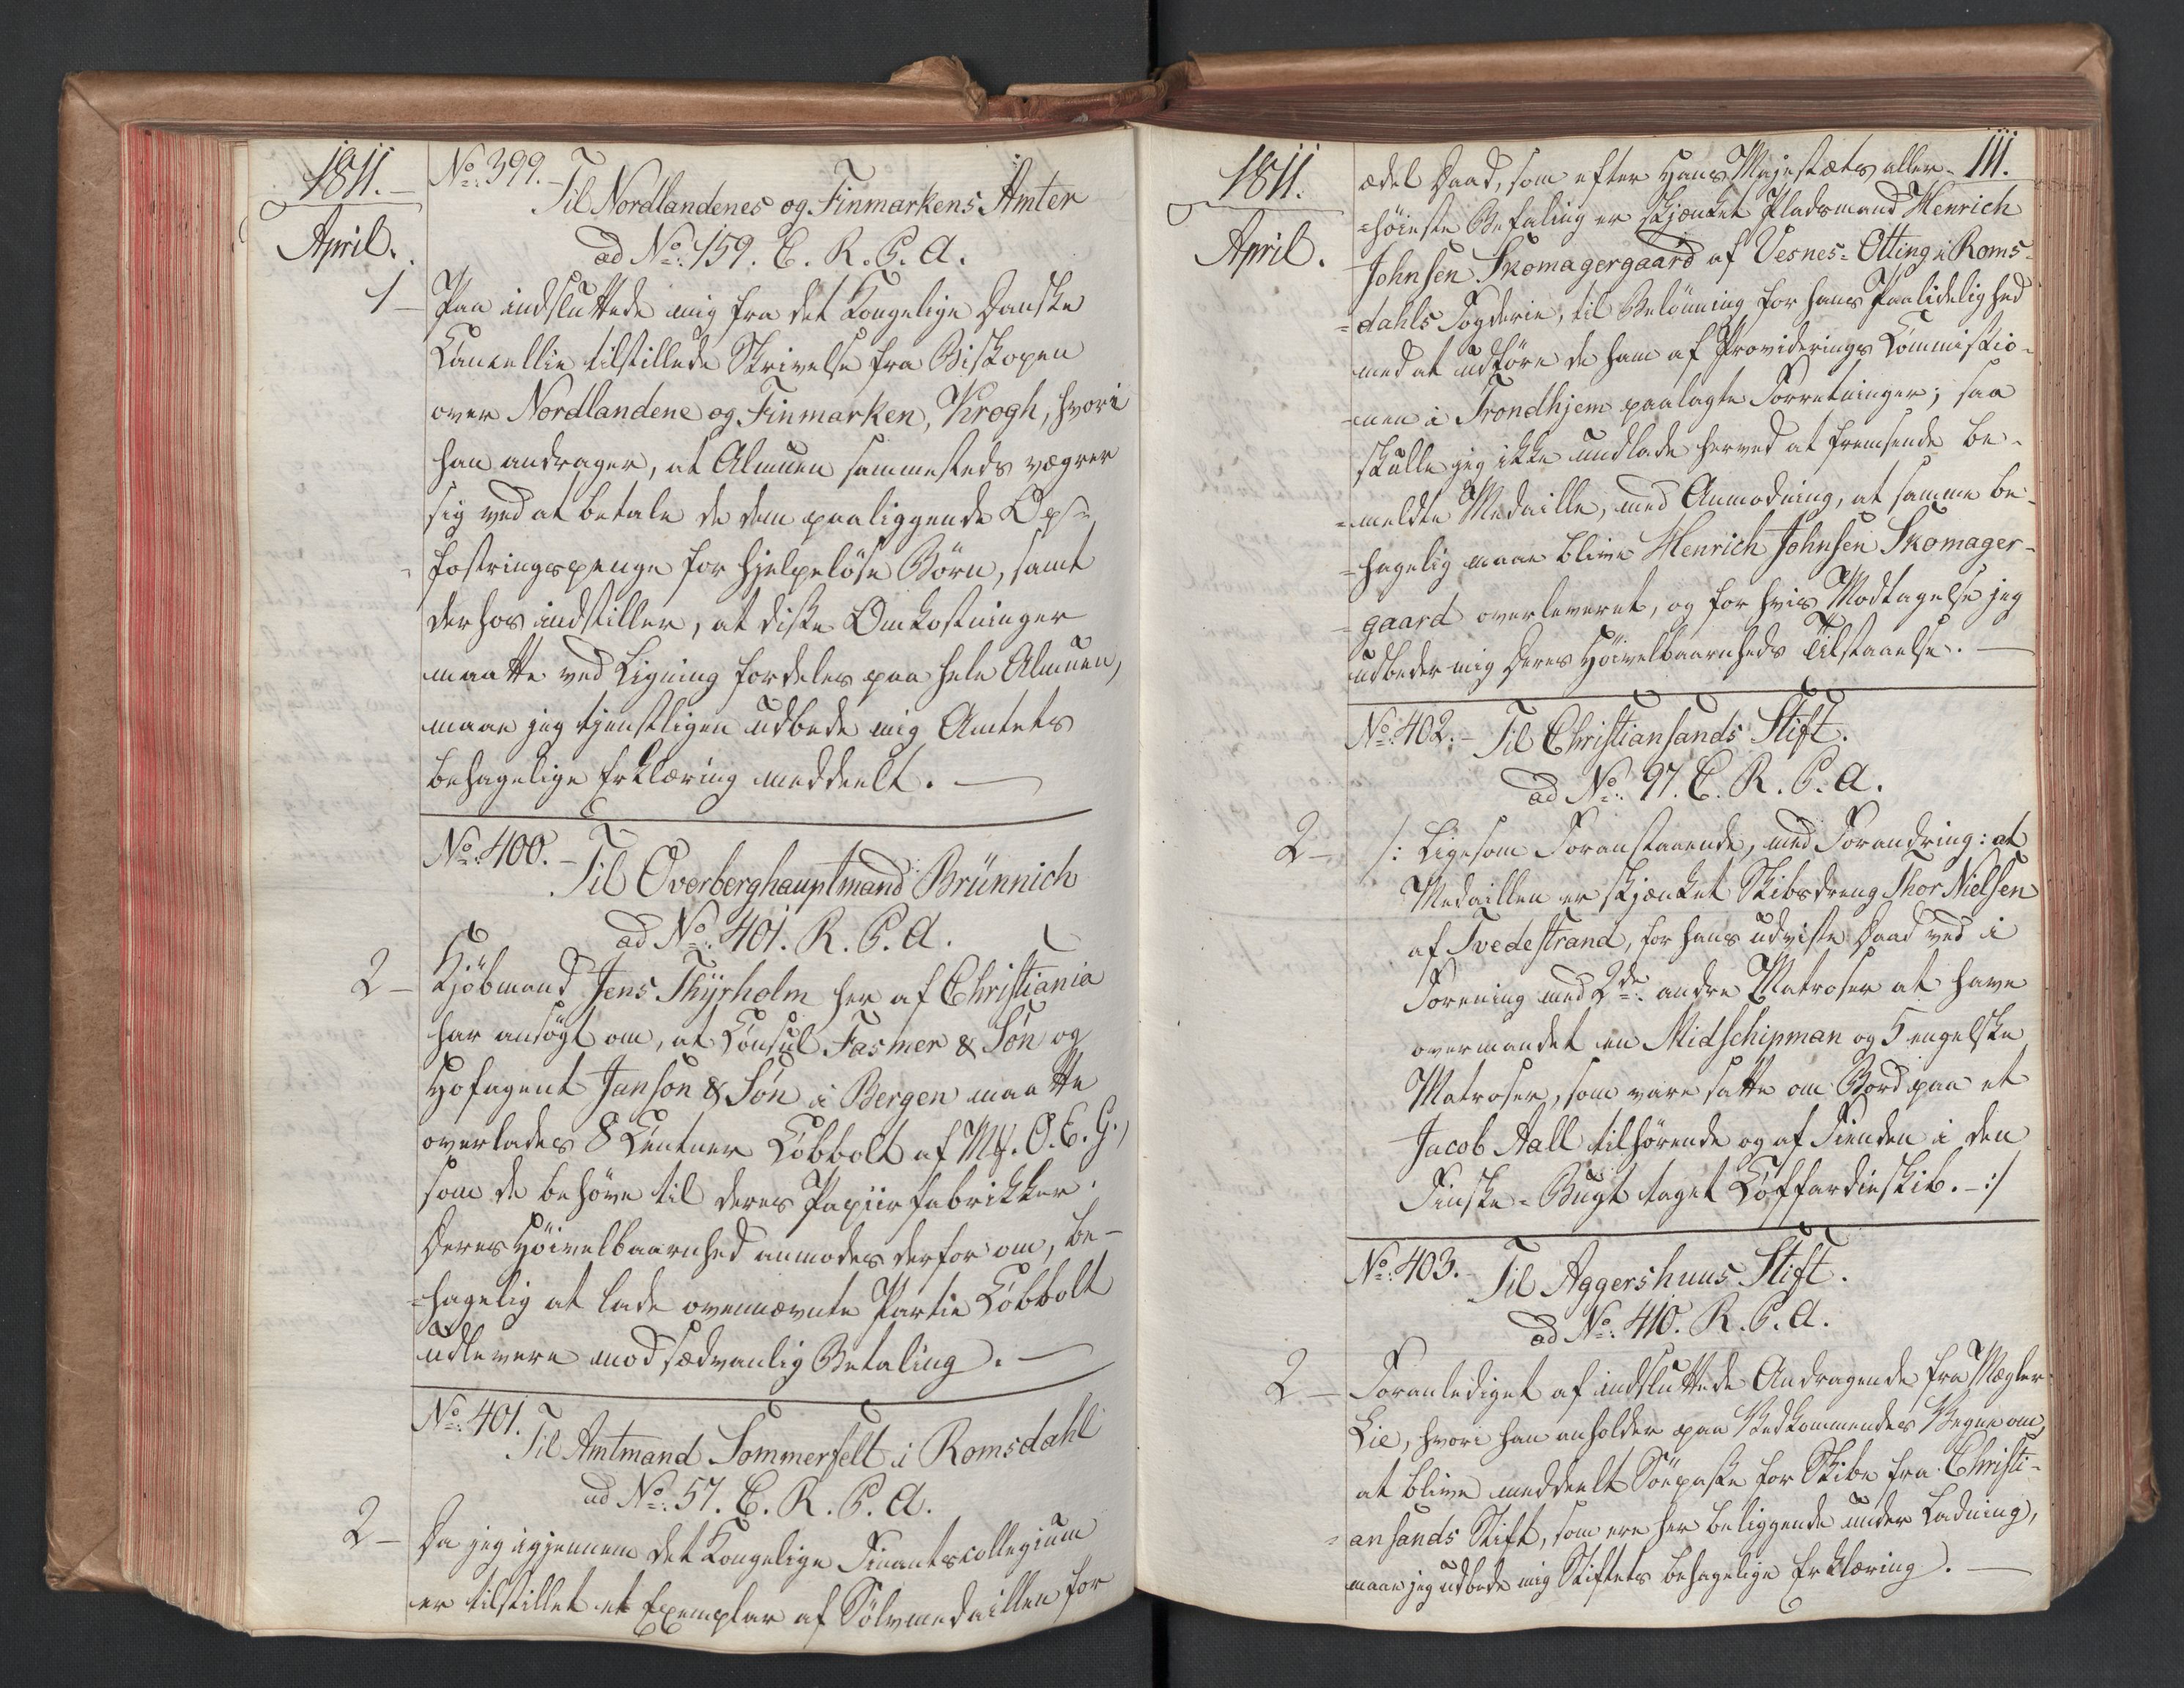 1811.
April.
No. 399.
Til Nordlandenes og Finmarkens Amter
ad No. 159. C. R. P. A.
1 – Paa indsluttede mig fra det Kongelige Danske
Cancellie tilstillede Skrivelse fra Biskopen
over Nordlandene og Finmarken, Krogh, hvori
han andrager, at Almuen sammesteds vægrer
sig ved at betale de dem paaliggende Op-
-fostringspenge for hjelpeløse Børn, samt
derhos indstiller, at disse Omkostninger
maatte ved Ligning fordeles paa hele Almuen,
maae jeg tjenstligen udbede mig Amtets
behagelige Erklæring meddeelt. –
No. 400. – Til Overberghauptmand Brünnich
ad No. 401. R. P. A.
2 – Kjöbmand Jens Thyrholm her af Christiania
har ansøgt om, at Consul Fasmer & Søn og
Hofagent Janson & Søn i Bergen maatte
overlades 8 Centner Cobbolt af M. O. E. G.,
som de behøve til deres Papiirfabrikker.
Deres Höivelbaarenhed anmodes derfor om, be-
-hagelig at lade ovennævnte Partie Cobbolt
udlevere mod sædvanlig Betaling. –
No. 401.
Til Amtmand Sommerfelt i Romsdahl
ad No. 57. C. R. P. A.
2 – Da jeg igjennem det Kongelige Finantscollegium
er tilstillet et Exemplar af Sölvmedaillen for
1811.
April.
111.
ædel Daad, som efter Hans Majestæts aller-
-höieste Befaling er skjænket Pladsmand Henrich
Johnsen Skomagergaard af Vesnes-Otting i Roms-
-dahls Fogderie, til Belönning for hans Paalidelighed
med at udføre de ham af Provideringscommissio-
-nen i Trondhjem paalagte Forretninger; saa
skulle jeg ikke undlade herved at fremsende be-
-meldte Medaille, med Anmodning, at samme be-
-hagelig maae blive Henrich Johnsen Skomager-
-gaard overleveret, og for hvis Modtagelse jeg
udbeder mig Deres Höivelbaarenheds Tilstaaelse. –
No. 402. – Til Christiansands Stift.
ad No. 97. C. R. P. A.
2 – /: Ligesom Foranstaaende, med Forandring: at
Medaillen er skjænket Skibsdreng Thor Nielsen
af Tvedestrand, for hans udviste Daad ved i
Forening med 2de andre Matroser at have
overmandet en Midschipman og 5 engelske
Matroser, som vare satte om Bord paa et
Jacob Aall tilhörende og af Fienden i den
Finske-Bugt taget Coffardieskib. – :/
No. 403. – Til Aggershuus Stift.
ad No. 410. R. P. A.
2 – Foranlediget af indsluttede Andragende fra Mægler
Lie, hvori han anholder paa Vedkommendes Vegne om,
at blive meddeelt Söepasse for Skibe fra Christi-
-ansands Stift, som ere her beliggende under Ladning,
maae jeg udbede mig Stiftets behagelige Erklæring. –